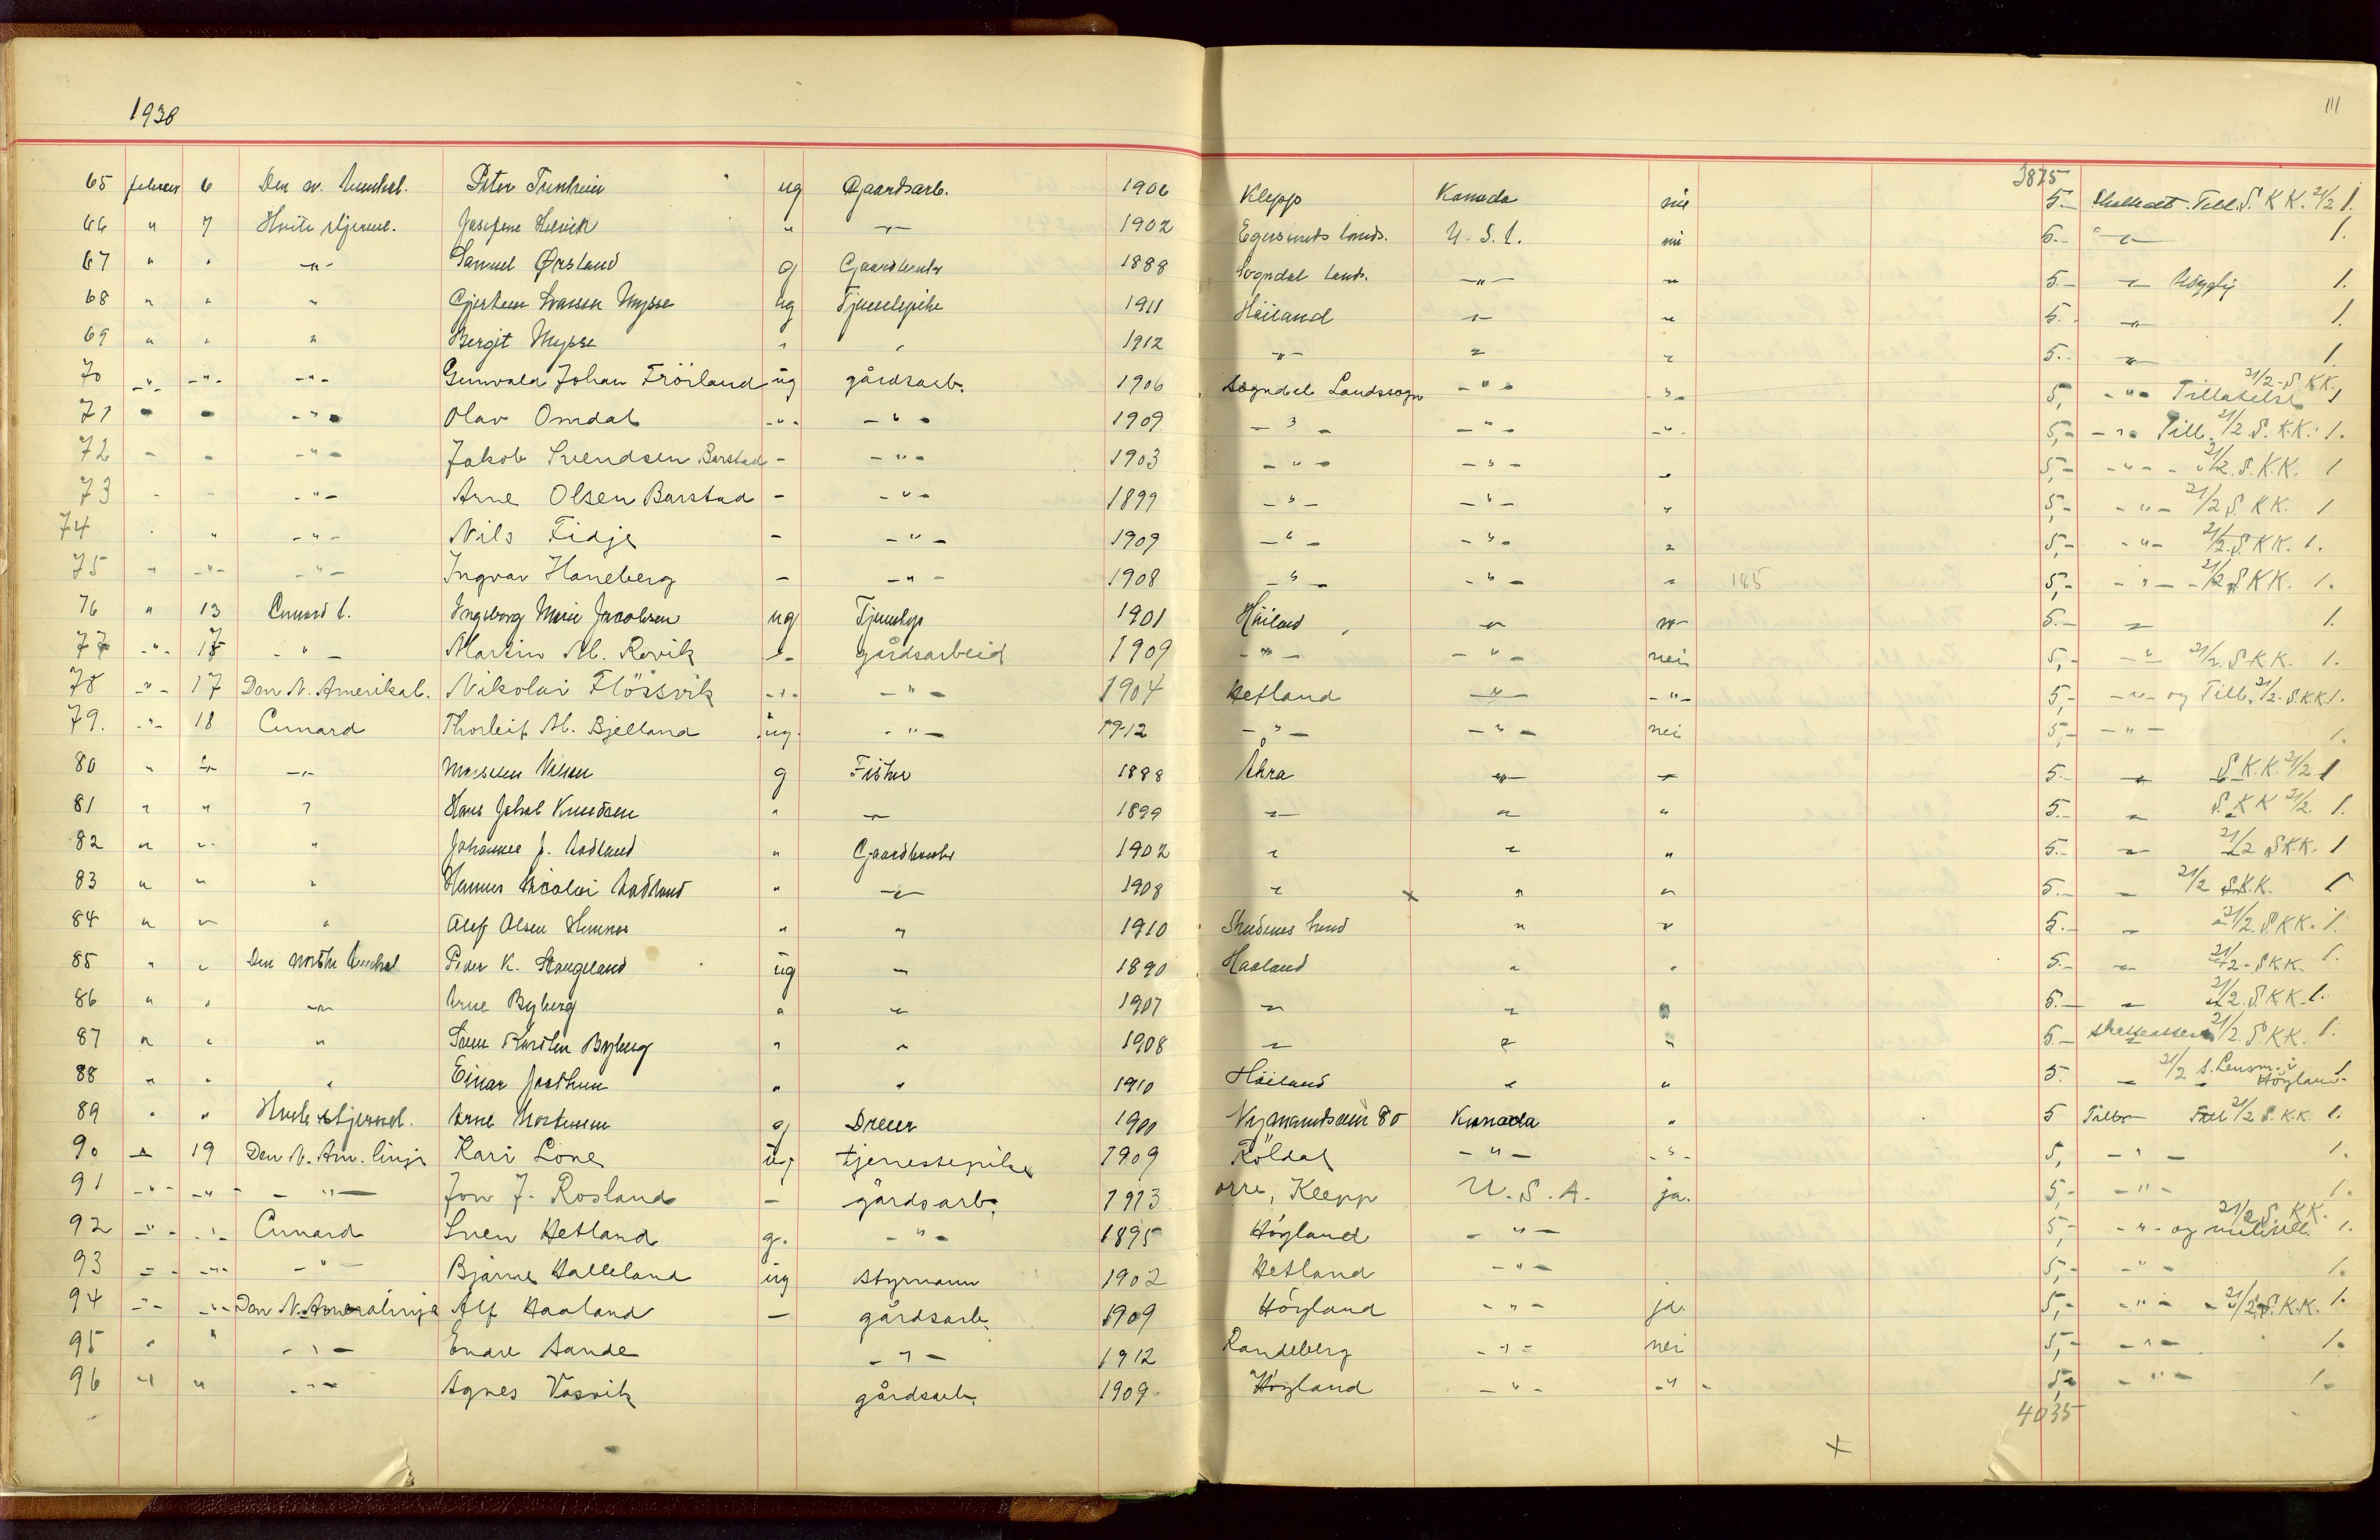 1930
111
3875
65 februar 6 Den n. Amerikal. Peter Tunheim ug Gaardsarb. 1906 Klepp Kanada nei 5.- Skatteatt. Till. S. K K. 21/2 1.
66 " 7 Hvite stjernel. Josefine Helvik " -"- 1902 Egersunds lands. U. S. A. nei 5.- -"- 1.
67 " " -"- Samuel Ørsland g Gaardbruker 1888 Sogndal Lands. -"- " 5.- -"- 1.
68 " " " Gjertsen Mysse ug Tjenestepike 1911 Háiland -"- " 5.- -"- 1.
69 " " " Bergit Mysse " " 1912 -"- " " 5.- -"- 1.
70 -"- -"- -"- Gunvald Johan Fröiland ug gårdsarb. 1906 Sogndal Landssogn -"- -"- 5,- -"- Tillatelse 21/2 - S. KK. 1
71 " " -"- Olav Omdal -"- -"- 1909 -"- -"- -"- 5,- -"- Till. 21/2 S. K.K. 1.
72 - - -"- Jakob Svendsen Barstad - -"- 1903 -"- -"- " 5,- -"- 21/2. S. K.K. 1
73 - - -"- Arne Olsen Barstad - -"- 1899 -"- -"- " 5,- -"- 21/2 S. KK. 1
74 " " -"- Nils Fidje - -"- 1909 -"- -"- " 5,- -"- 21/2. S. KK. 1.
75 " -"- -"- Ingvar Haneberg - -"- 1908 -"- -"- " 185 5,- -"- 21/2 S. KK. 1.
76 " 13 Cunard l. Ingeborg Marie Jacobsen ug Tjenestep 1901 Háiland " " 5.- " 1.
77 -"- 17 -"- Martin M. Rovik -"- gårdsarbeid 1909 -"- -"- nei 5,- -"- 21/2. S. K.K. 1.
78 -"- 17 Den N. Amerikal. Nikolai Flössvik -"- -"- 1904 Hetland -"- -"- 5,- -"- og Till. 21/2. S. K.K 1.
79. -"- 18 Cunard Thorleif M. Bjelland ug. -"- 1912 -"- -"- nei 5,- -"- 1.
80 " " -"- Nilsen g Fisker 1888 Åkra -"- " 5.- " S. K.K. 21/2. 1
81 " " " Hans Jakob Knudsen " -"- 1899 " " " 5.- " S. KK 21/2. 1.
82 " " " Johannes J. Aadland " Gaardbruker 1902 " " " 5.- " 21/2 S K.K. 1
83 " " " Nicolai Aadland " -"- 1908 " x " " 5.- " 21/2 S.K.K. 1
84 " " " Olsen " " 1910 Skudenes land " " 5.- " 21/2. S. KK. 1.
85 " " Den norske Amerikal Peder K. Stangeland ug " 1890 Haaland " " 5.- " 21/2 - S. K.K. 1.
86 " " -"- Arne Byberg " " 1907 " " " 5.- " 21/2. S. KK. 1.
87 " " " Karsten Byberg " " 1908 " " " 5.- Skatteattest 21/2. S. KK. 1.
88 " " " Einar " " 1910 Háiland " " 5. " 21/2 S. Lensm. i Höyland. 1
89 " " Hvite stjernel. Arne Mortensen g Dreier 1900 80 Kanada " 5 21/2 S. K.K. 1.
90 " 19 Den N. Am. linje Kari Löne ug tjenestepike 1909 Röldal -"- -"- 5, -"- 1.
91 -"- -"- -"- Jon J. Rosland - gårdsarb. 1913 Orre, Klepp U. S. A. ja. 5,- -"- 1.
92 -"- -"- Cunard Sven Hetland g. -"- 1895 Höyland -"- 5,- -"- og 21/2 S. KK. 1.
93 -"- -"- -"- Bjarne Halleland ug styrmann 1902 Hetland -"- 5,- -"- 1.
94 -"- -"- Den N. Amerikalinje Alf Haaland - gårdsarb. 1909 Höyland -"- ja. 5,- -"- 21/2 S. K.K. 1.
95 " " -"- Endre Sande -"- 1912 Randeberg -"- nei 5,- -"- 1.
96 " " -"- Agnes Vasvik gårdsarb. 1909 Höyland -"- -"- 5,- -"- 1.
4035
x